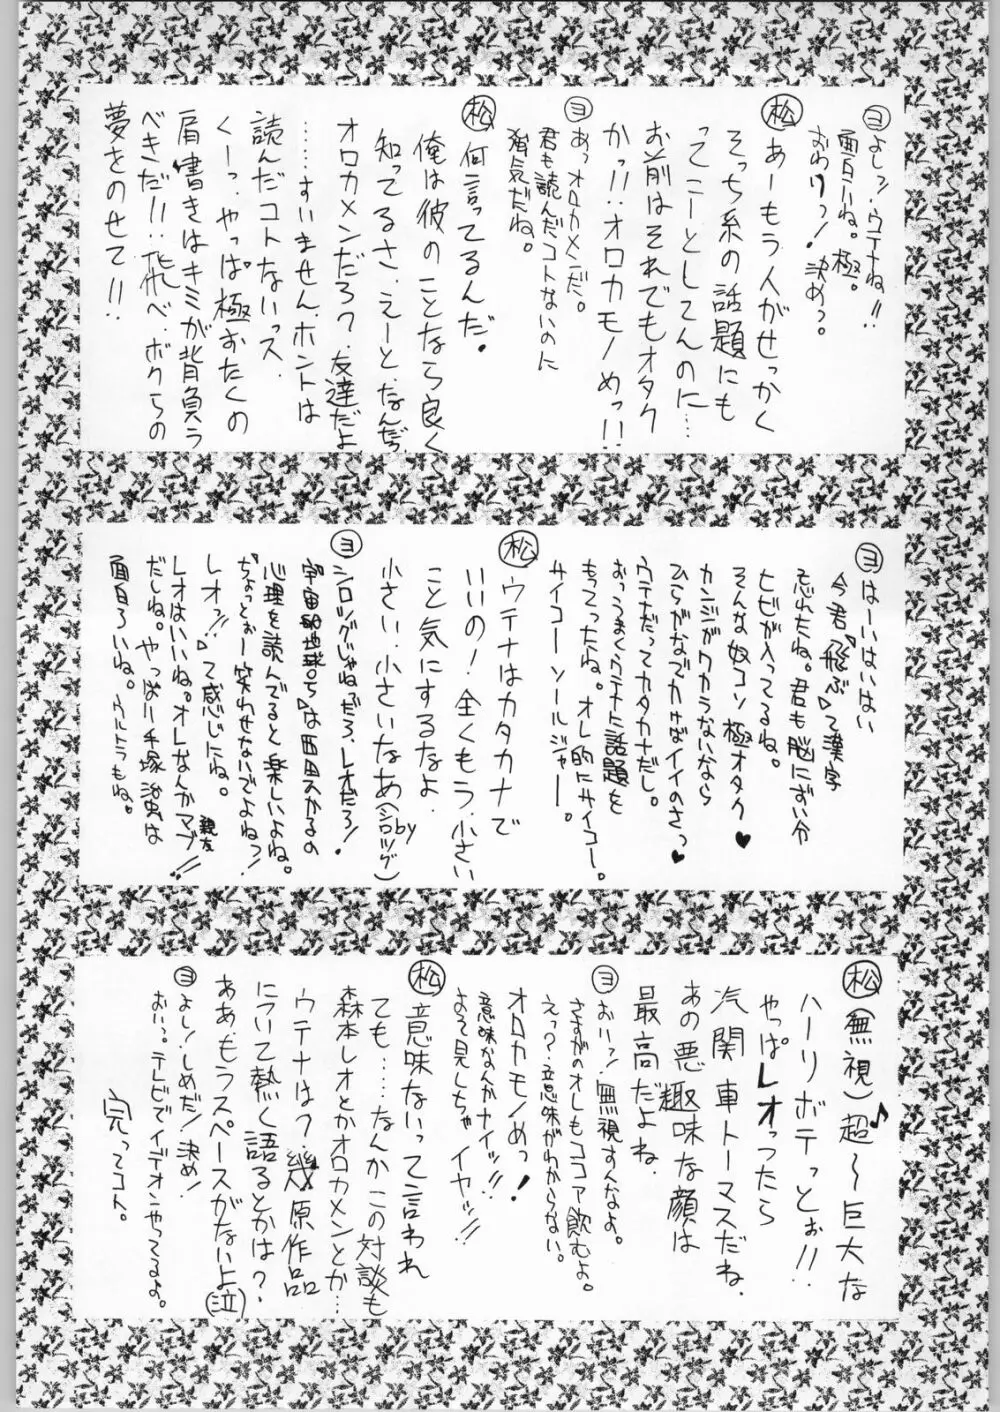 ヨ よしッ!ウテナね!!
面白いね。極。
おわりっ! 決めっ。
松 あーもう人がせっかく
そっち系の話題にも
ってこーとしてんのに…
お前はそれでもオタク
かっ!!オロカモノめっ!!
ヨ あっオロカメンだ。
君も読んだコトないのに
病気だね。
松 何言ってるんだ。
俺は彼のことなら良く
知ってるさ、えーと、なんだっ
オロカメンだろ?、友達だよ
……すいません、ホントは
読んだコトないっス
くーっ、やっぱ極おたくの
肩書きはキミが背負う
べきだ!!飛べ、ボクらの
夢をのせて!!
ヨ はーいはいはい
今君『飛ぶ』って漢字
忘れたね。君も脳にずい分
ヒビが入ってるね。
そんな奴コソ極オタク♥
カンジがワカラないなら
ひらがなでカけばイイのさっ♥
ウテナだってカタカナだし。
おっうまくウテナに話題を
もってったね。オレ的にサイコー。
サイコーソールジャー。
松 ウテナはカタカナで
いいの!全くもう、小さい
こと気にするなよ、
小さい、小さいなあ(by
シロッグ)
ヨ シロッグじゃねーだろ、レオだろ!
『宇宙船地球号』は西田ひかるの
心理を読んでると楽しいよね。
『ちょっとぉー笑わせないでよねっ!
レオッ!!』って感じにね。
レオはいいね。オレなんかマブ!!
親友
だしね。やっぱり手塚治虫は
面白ろいね。ウルトラもね。
松 (無視)超〜♪巨大な
ハーリボテっとぉ!!
やっぱレオったら
汽関車トーマスだね、
あの悪趣味な顔は
最高だよね、
ヨ おいッ!無視すんなよ。
さすがのオレもココア飲むよ。
えっ?、意味がわからない。
オロカモノめっ!
意味なんかナイッ!!
よって見しちゃイヤッ!!
松 意味ないって言われ
ても……なんかこの対談も
森本レオとかオロカメンとか…
ウテナは?、幾原作品
について熱く語るとかは?、
ああもうスペースがないよ(泣)
ヨ よし!しめだ!決め!
おいっ。テレビでイデオンやってるよ。
完ってコト。